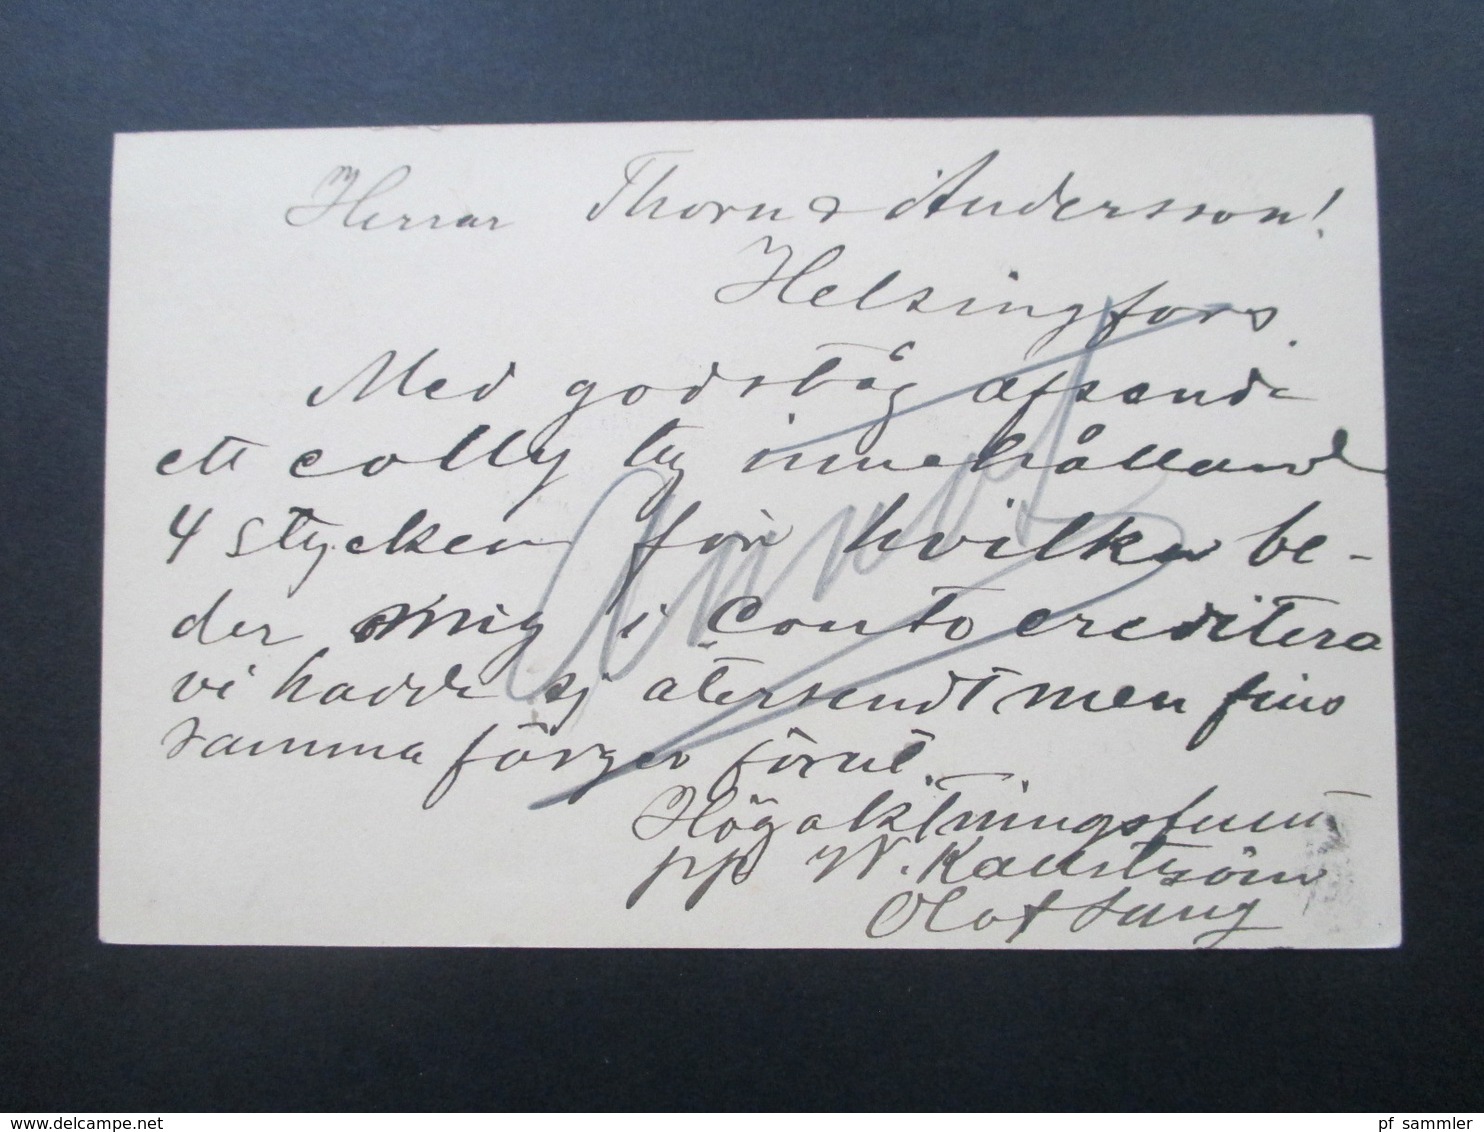 Herrar Thorn & Andersson!
Helsingfors
Med godståg afsende
ett colly tyg innehålland
4 stycken för hvilka be-
der mig i Conto creditera
vi hade ej återsendt men fins
samma färger förut.
Högaktningsfullt
pp W.
Olof
delcampe.net
pf_sammler